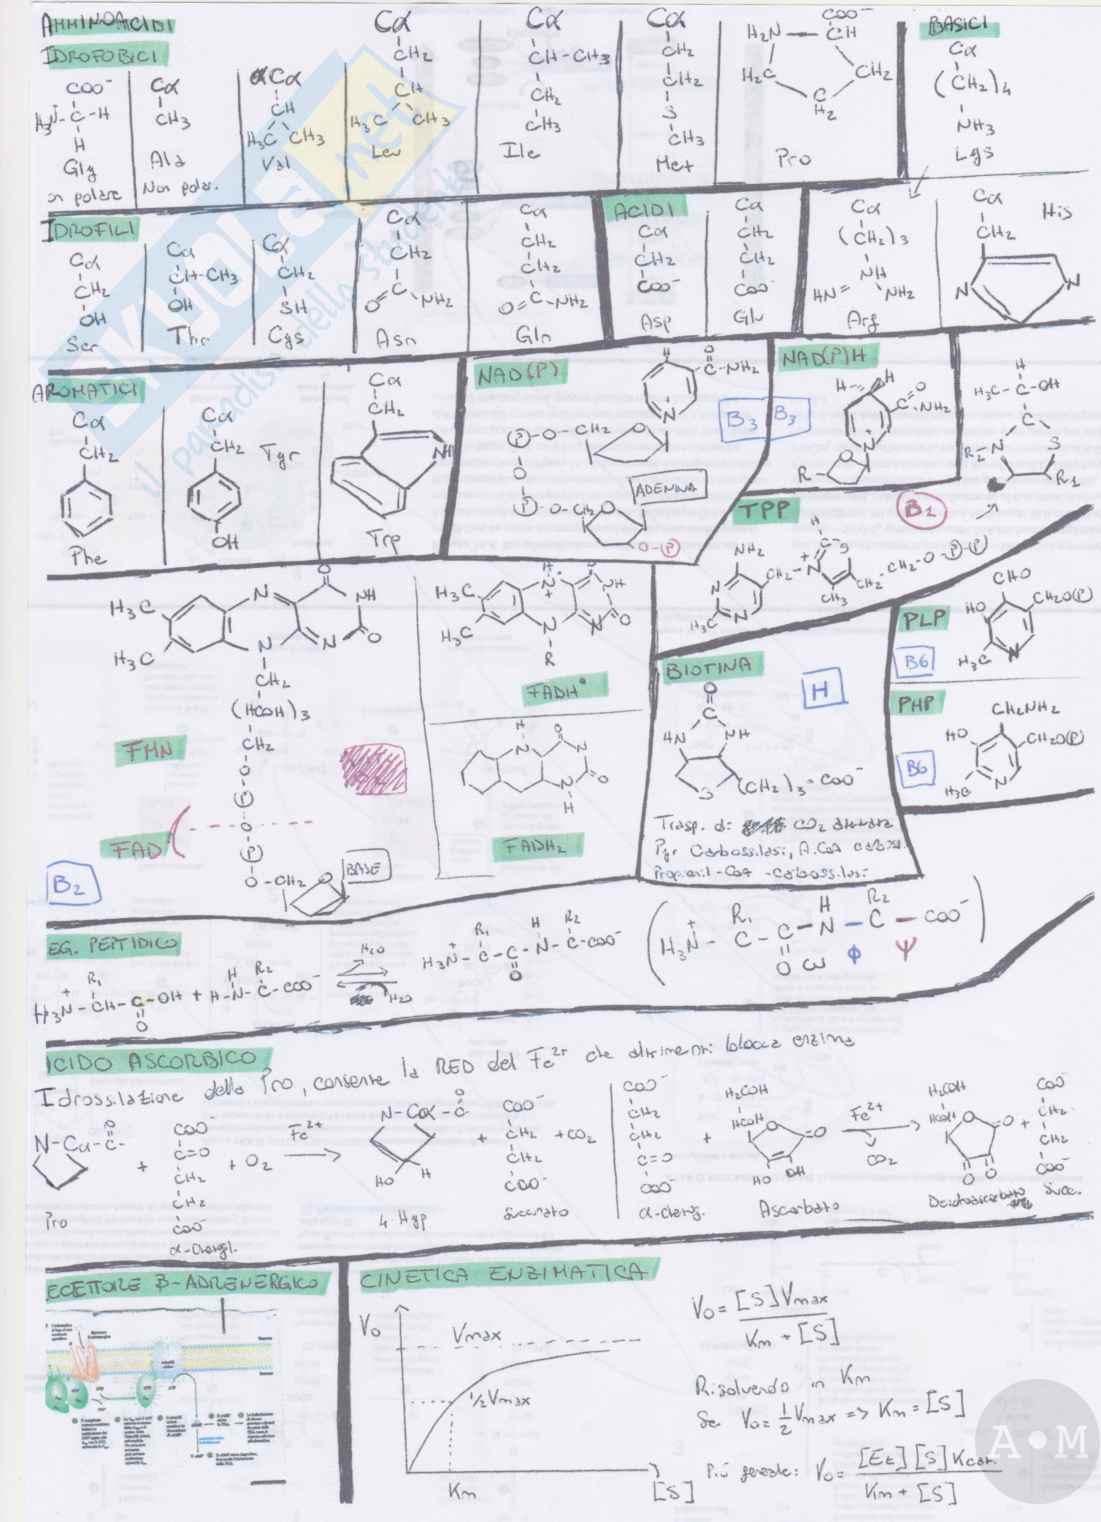 AMMINOACIDI
IDROFOBICI
COO⁻
H₃N⁺-C-H
H
Gly
Cα
CH₃
Ala
Non polar.
Cα
CH
H₃C CH₃
Val
Cα
CH₂
CH
H₃C CH₃
Leu
Cα
CH-CH₃
CH₂
CH₃
Ile
Cα
CH₂
CH₂
S
CH₃
Met
COO⁻
H₂N CH
H₂C CH₂
C
H₂
Pro
BASICI
Cα
(CH₂)₄
NH₃
Lys
IDROFILI
Cα
CH₂
OH
Ser
Cα
CH-CH₃
OH
Thr
Cα
CH₂
SH
Cys
Cα
CH₂
C
O NH₂
Asn
Cα
CH₂
CH₂
O=C-NH₂
Gln
ACIDI
Cα
CH₂
COO⁻
Asp
Cα
CH₂
CH₂
COO⁻
Glu
Cα
(CH₂)₃
NH
HN= NH₂
Arg
Cα
CH₂
N N
His
AROMATICI
Cα
CH₂
Phe
Cα
CH₂
OH
Tyr
Cα
CH₂
NH
Trp
NAD(P)
H O
C-NH₂
N⁺
P-O-CH₂ O
O
P-O-CH₂ O
ADENINA
O-P
B₃
NAD(P)H
B₃
H H
C-NH₂
O
N
R O
H
H₃C-C-OH
C
R₂-N S
R₁
TPP
B₁
NH₂
N
H₃C N
CH₂-N⁺
CH₃
CH₂-CH₂-O-P-P
H₃C
H₃C
N N
NH
O
O
CH₂
(HCOH)₃
CH₂
O
P
O
P
O-CH₂
BASE
FMN
FAD
B₂
H₃C
H₃C
N
R
NH
O
FADH•
H
N
O
N
H
FADH₂
BIOTINA
H
O
C
HN NH
S
(CH₂)₃-COO⁻
Trasp. di CO₂ attivata
Pyr Carbossilasi, A.CoA carboss.
Propionil-CoA-carbossilasi
PLP
B6
CHO
HO CH₂O(P)
H₃C N
PMP
B6
CH₂NH₂
HO CH₂O(P)
H₃C N
EG. PEPTIDICO
H₃N⁺-CH-C-OH + H-N-C-COO⁻
R₁ O H R₂
H₂O
H₂O
H₃N⁺-C-C-N-C-COO⁻
R₁ O H R₂
(H₃N⁺-C-C-N-C-COO⁻)
R₁ O H R₂
ω Φ Ψ
ICIDO ASCORBICO
Idrossilazione della Pro, consente la RED del Fe²⁺ che altrimenti blocca enzima
N-Cα-C
O
Pro
+
COO⁻
C=O
CH₂
CH₂
COO⁻
α-chetogl.
+ O₂
Fe²⁺
N-Cα-C
O
HO H
4 Hyp
+
COO⁻
CH₂
CH₂
COO⁻
Succinato
+CO₂
COO⁻
CH₂
CH₂
C=O
COO⁻
α-chetog.
+
H₂COH
HCOH
O
HO OH
Ascorbato
Fe²⁺
CO₂
H₂COH
HCOH
O
O O
Deidroascorbato
+
COO⁻
CH₂
CH₂
COO⁻
Succ.
ECETTORE β-ADRENERGICO
CINETICA ENZIMATICA
V₀
Vmax
½Vmax
Km
[S]
V₀ = [S]Vmax / Km + [S]
Risolvendo in Km
Se V₀ = ½Vmax => Km = [S]
Più generale: V₀ = [Et][S]Kcat / Km + [S]
A•M
SKUOLA.net
il paradiso dello studente